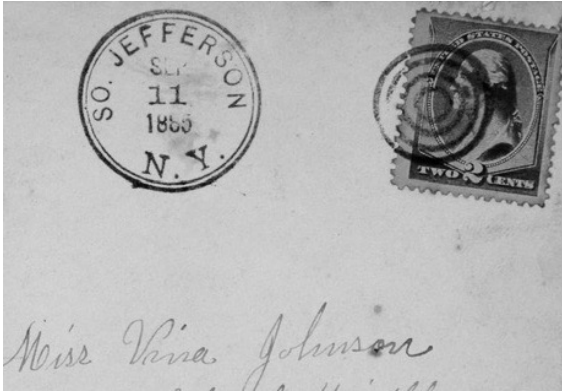 SO. JEFFERSON
SEP
11
1885
N.Y.
UNITED STATES POSTAGE
TWO 2 CENTS
Miss Vina Johnson